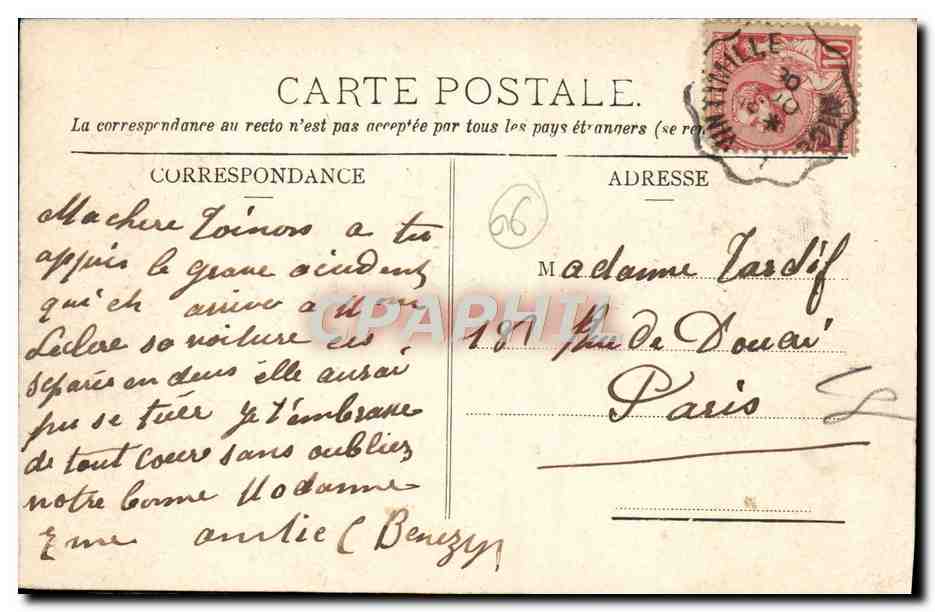 CARTE POSTALE.
La correspondance au recto n'est pas acceptée par tous les pays étrangers (se ren
VINTIMILLE
10
CORRESPONDANCE
ADRESSE
06
Ma chere Toinon a tu
appris le grave acident
qui et arriver a
Leclere sa voiture es
separés en deus elle aurai
pu se tuér je t'embrasse
de tout coeur sans oubliez
notre bonne Madame
Benezy
Madame Tardif
187 Rue de Douai
Paris
CPAPHIL